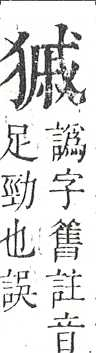 譌字舊註音
足勁也誤